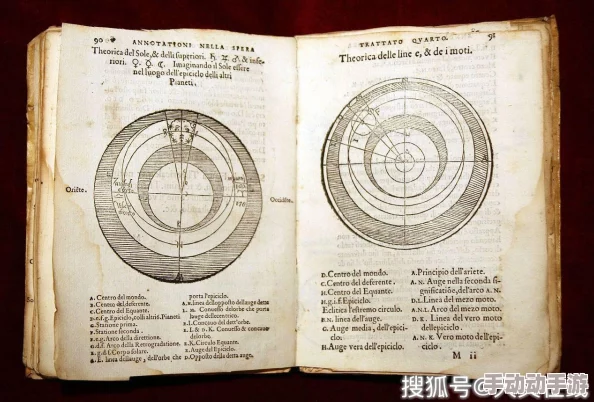 90 ANNOTATIONI NELLA SPERA
Theorica del Sole, & delli superiori. ♄ ♃ ♂ & infe-
riori. ♀ ☿ ☾. Imaginando il Sole essere
nel luogo dell'epiciclo delli altri
Pianeti.
Oriẽte.
Occidẽte.
A. Centro del mondo.
B. Centro del deferente.
C. Centro del Equante.
D.e.f.g. Epiciclo, colli altri Pianeti
G. Statione prima.
F. Statione seconda.
E.g. Arco della direttione.
G.d.f. Arco della Retrogradatione.
R.g.d.l Corpo solare.
A.E. linea dellauge, dell'orbe che
porta l'epiciclo.
A.n. linea dellopposito dellauge detta
L. M. Concesso delorbe che porta
lauge dellecentrico.
L. Concauo del dett'orbe.
L. & o. K. Concesso & concauo
delorbe.
K. Circulo Equante.
E. Auge del Epiciclo.
D. Opposito della detta auge.
TRATTATO QUARTO. 91
Theorica delle line e, & de i moti.
D. Centro del mondo.
C. Centro del deferente.
I. Centro del Equante.
H.g.i.f. Epiciclo.
Eclitica l'estremo circulo.
B.N. linea dell'auge.
G. Auge media, dell'epici-
clo.
H. Auge vera dell'epiciclo.
A. Principio dell'ariete.
A. N. Auge nella seconda si-
gnificatiõe, del'arco A. N.
D.L. Linea del mezo moto.
A.L. Arco del mezo moto.
D. K. Linea del vero moto
dellepiciclo.
A. K. Vero moto dell'epi-
ciclo.
M ii
搜狐号@
手动动手游